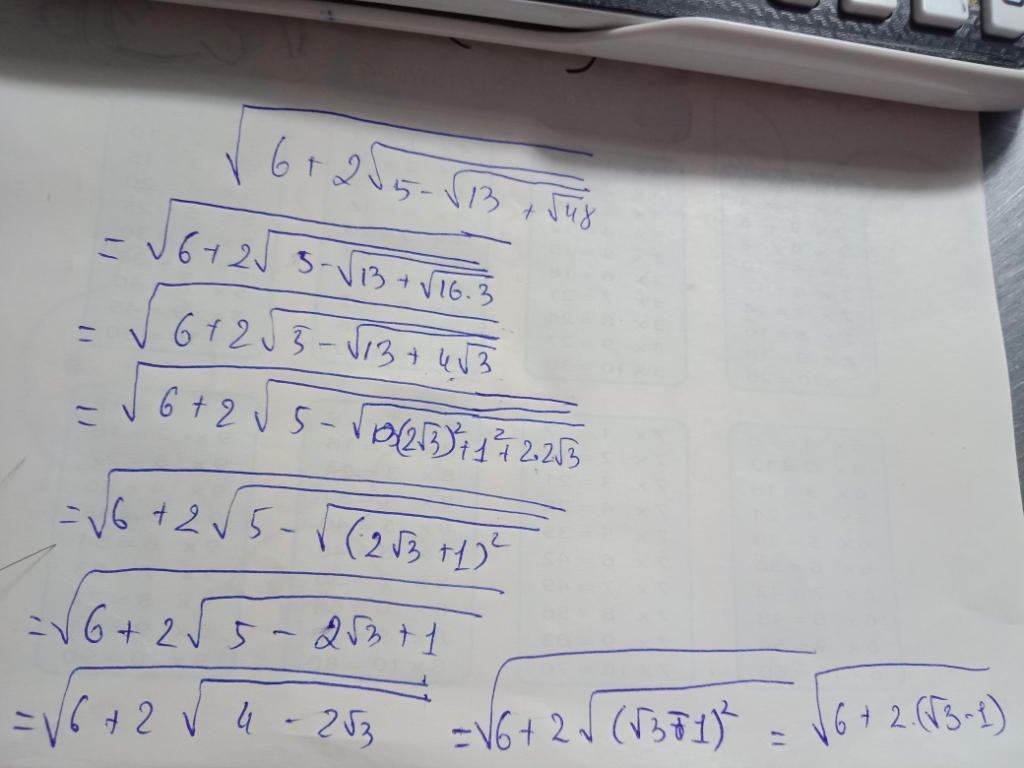 √(6 + 2√(5 - √(13 + √48)))
= √(6 + 2√(5 - √(13 + √(16.3))))
= √(6 + 2√(5 - √(13 + 4√3)))
= √(6 + 2√(5 - √((2√3)² + 1² + 2.2√3)))
= √(6 + 2√(5 - √((2√3 + 1)²)))
= √(6 + 2√(5 - 2√3 + 1))
= √(6 + 2√(4 - 2√3)) = √(6 + 2√((√3 - 1)²)) = √(6 + 2.(√3 - 1))